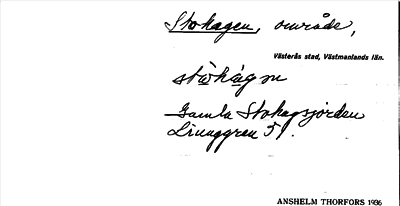 Stohagen, område,
Västerås stad, Västmanlands län.
stòhàgɷn
Gamla Stohagsjorden
Ljunggren 51.
ANSHELM THORFORS 1936